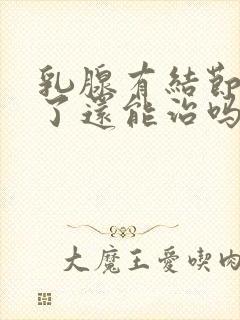 乳腺有結節
了還能治嗎
大魔王愛喫肉